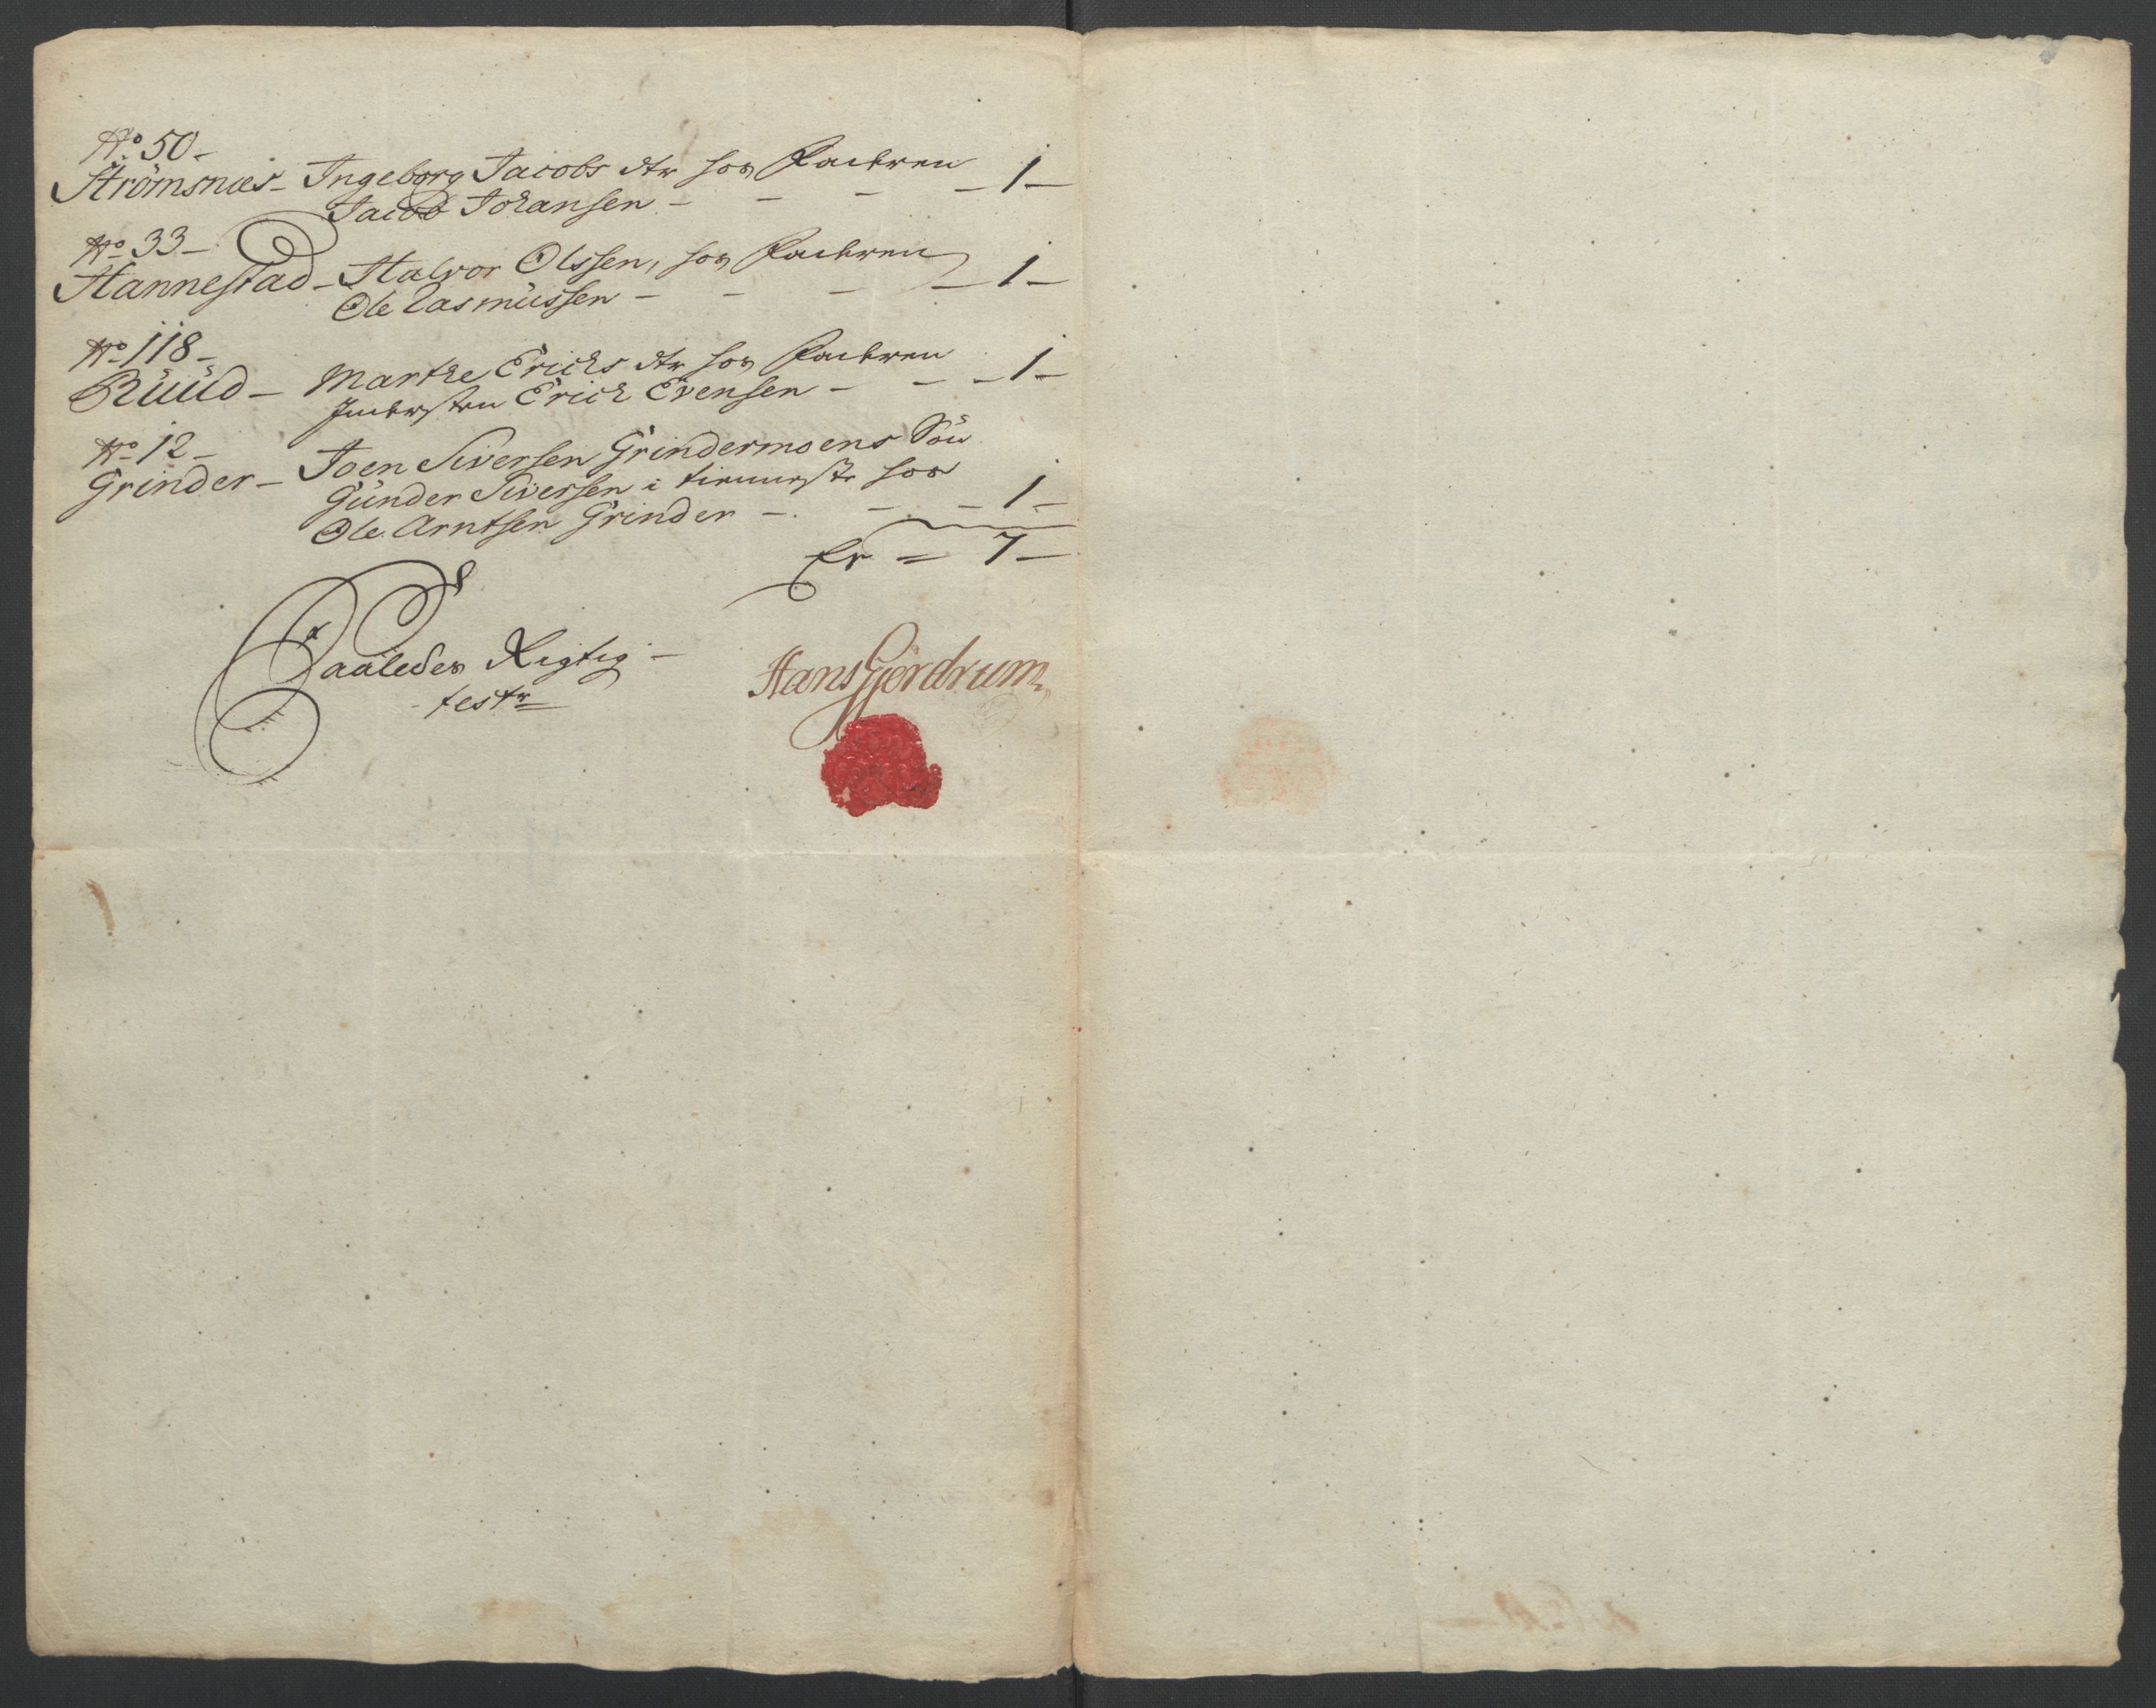 No 50 -
Strömsnæs - Ingeborg Jacobs dtr hos Faderen - 1 -
Jacob Johansen - - -
No 33 -
Hannestad - Halvor Olssen, hos Faderen - 1 -
Ole Rasmüssen - - -
No 118 -
Rüüd - Marthe Erichs dtr hos Faderen
Indersten Erich Evensen - - - 1 -
No 12 -
Grinder - Joen Siversen Grindermoens Sön
Günder Siversen i tienneste hos
Ole Arntsen Grinder - - - 1 -
Er = 7 -
Saaledes Rigtig -
testr
Hans Gjerdrum